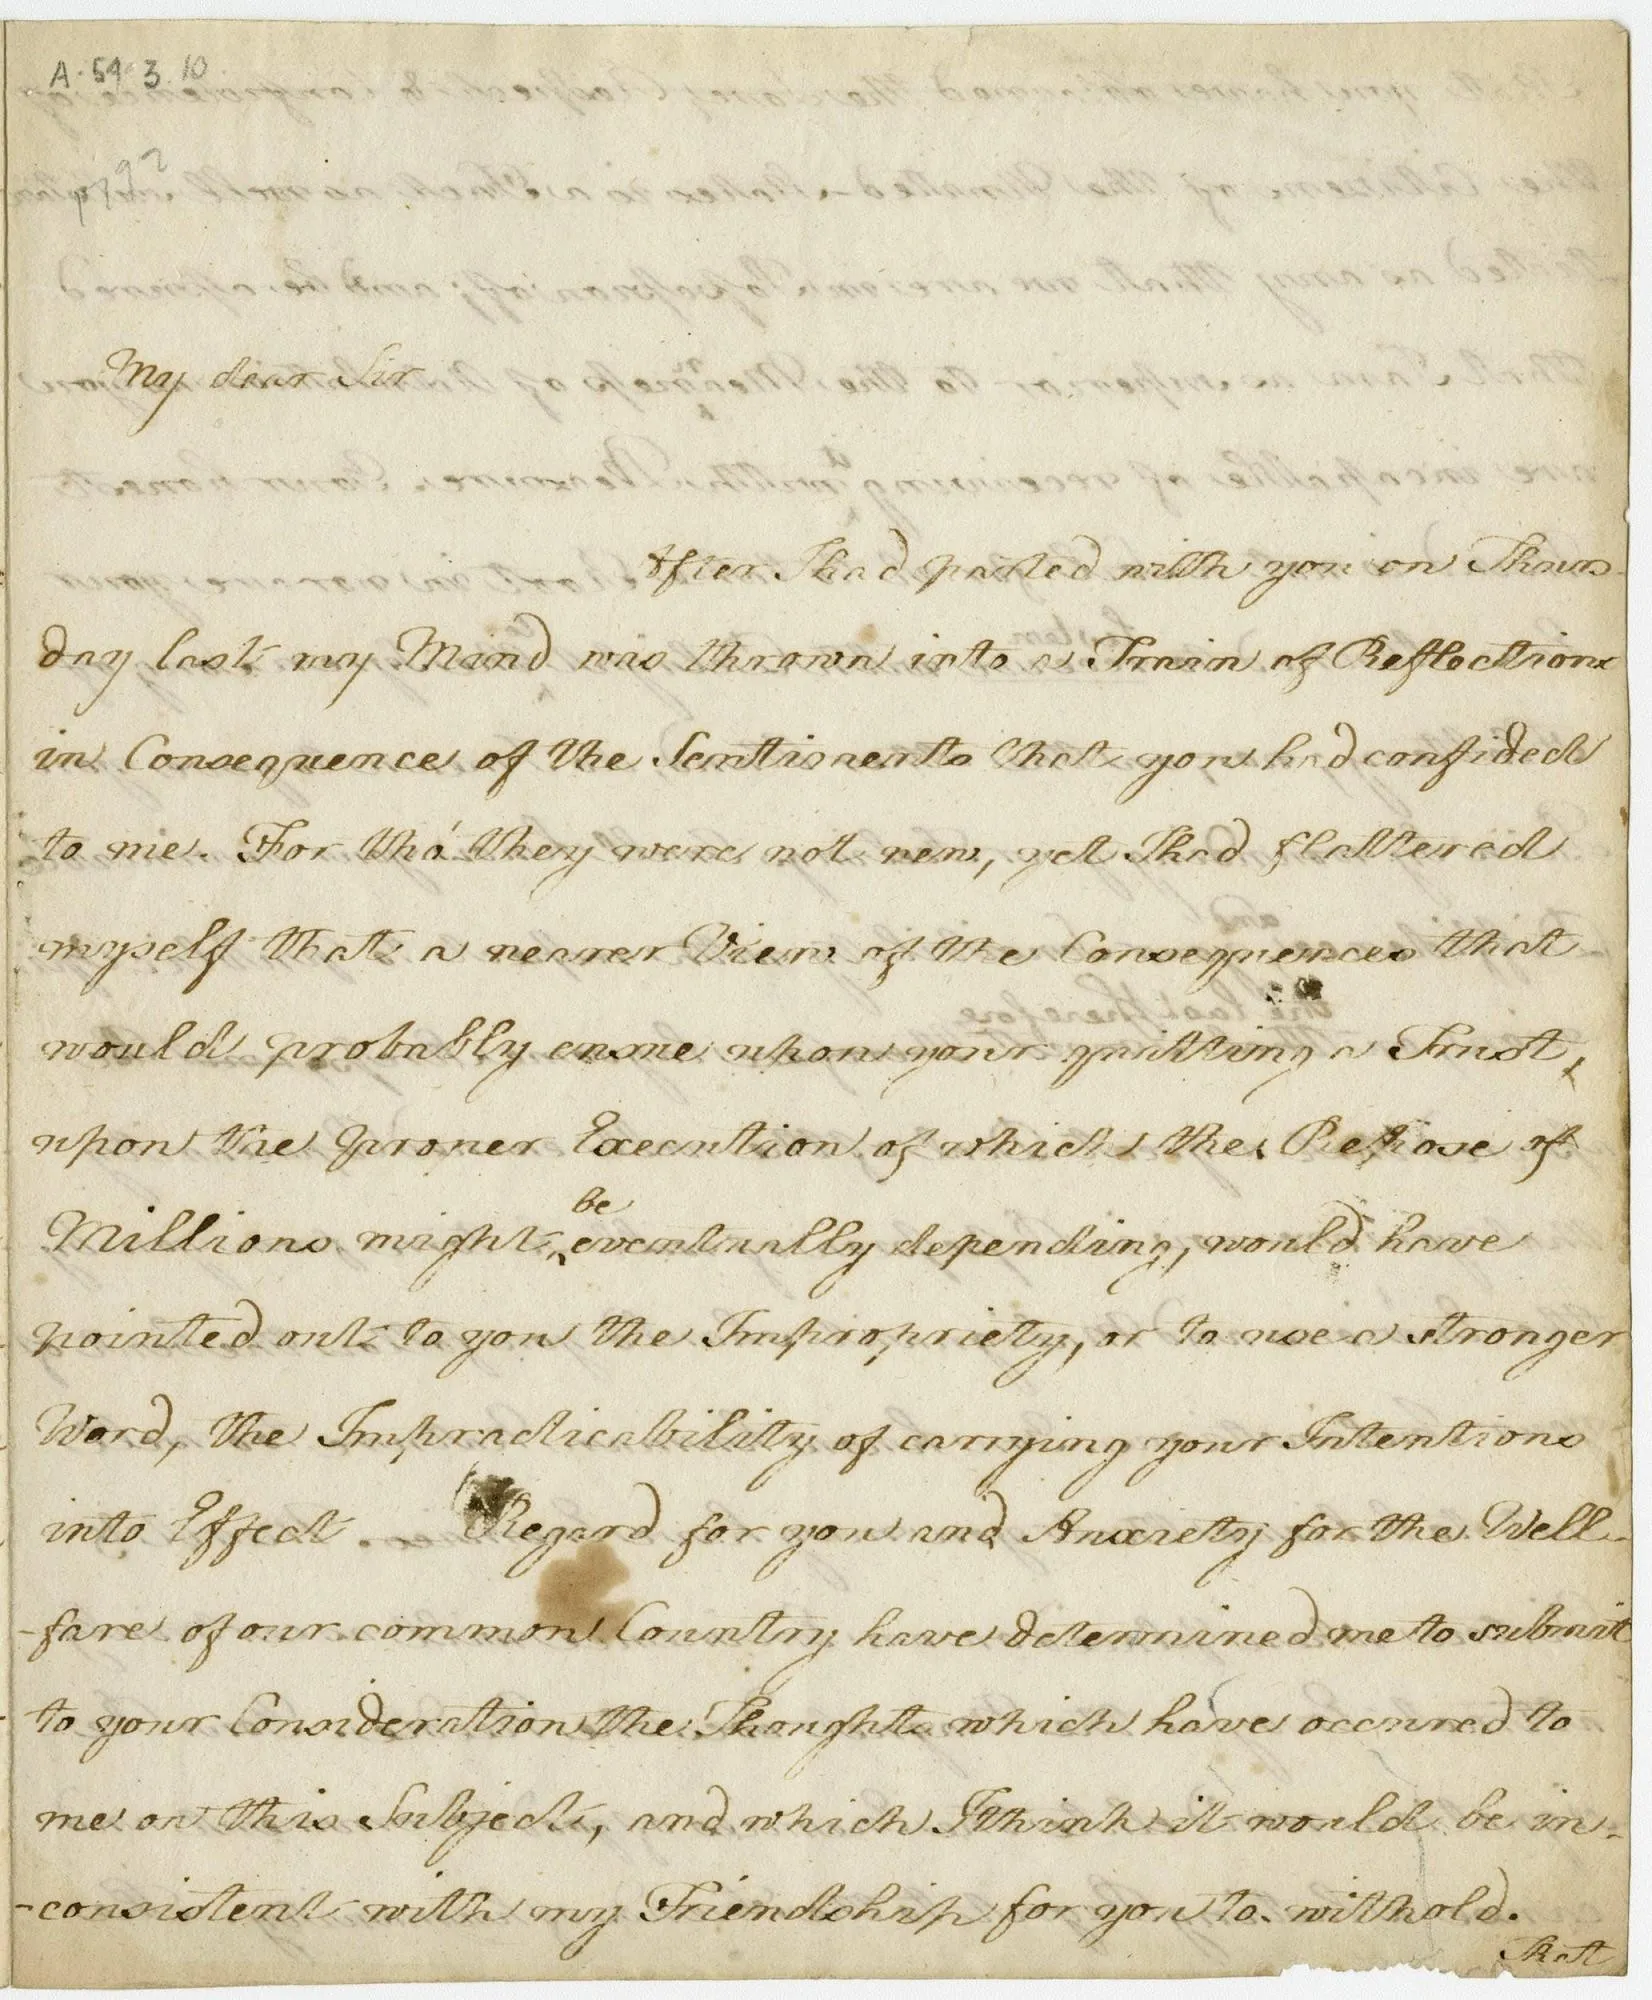 A-54.3.10
1792
My dear Sir
After I had parted with you on Thurs-
day last my Mind was thrown into a Train of Reflections
in Consequence of the Sentiments that you had confided
to me. For tho' they were not new, yet I had flattered
myself that a nearer View of the Consequences that
would probably ensue upon your quitting a Trust,
upon the proper Execution of which the Repose of
be
Millions might ‸ eventually depending, would have
pointed out to you the Impropriety, or to use a stronger
Word, the Impracticability of carrying your Intentions
into Effect. — Regard for you and Anxiety for the Well-
-fare of our common Country have determined me to submit
to your Consideration the Thoughts which have occured to
me on this Subject, and which I think it would be in-
-consistent with my Friendship for you to withold.
That